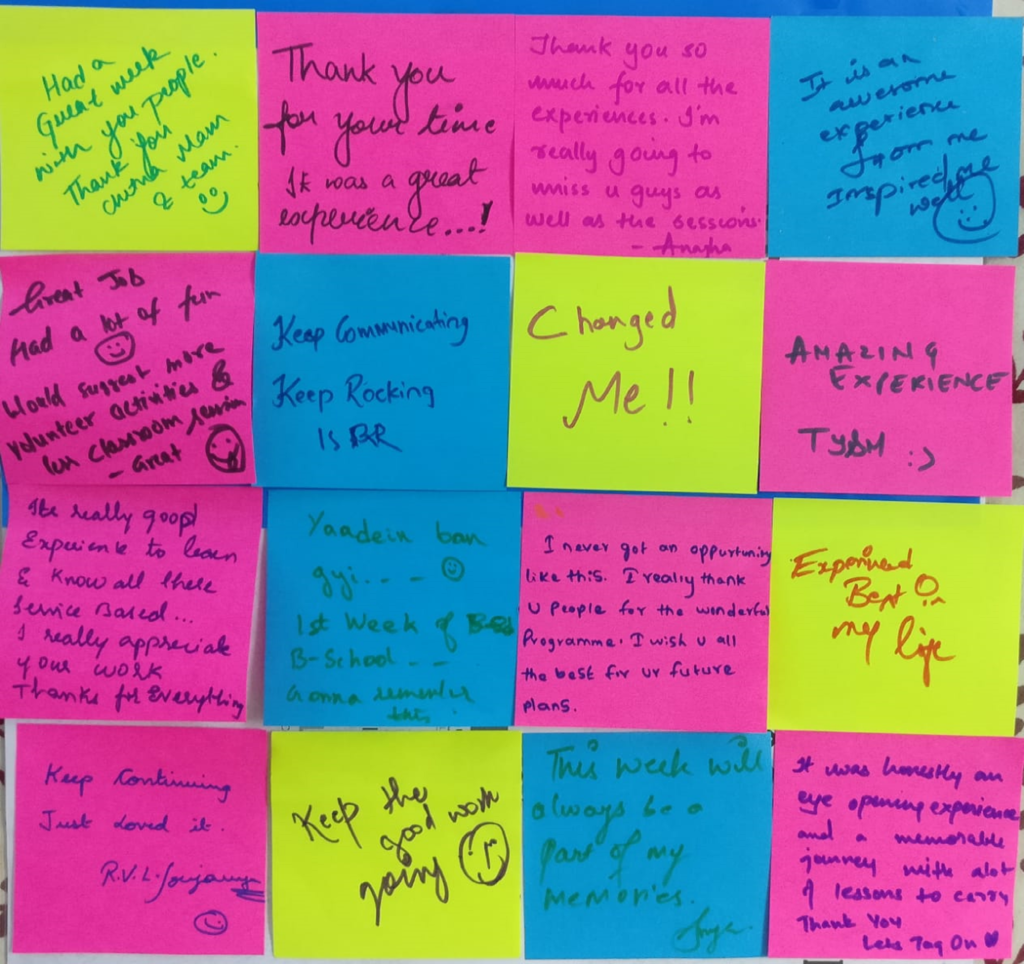 Had a
Great week
with you people.
Thank you
Mam
& team.
Thank you
for your time
It was a great
experience....!
Thank you so
much for all the
experiences. I'm
really going to
miss u guys as
well as the sessions.
- Anagha
It is an
awesome
experience
from me
Inspired me
well
Great Job
Had a lot of fun
Would suggest more
volunteer activities &
classroom session
- Great
Keep Communicating
Keep Rocking
Is BR
Changed
Me!!
AMAZING
EXPERIENCE
TYSM :)
Its really good
Experience to learn
& know all these
Service Based...
I really appreciate
your work
Thanks for Everything
Yaadein ban
gyi.. - -
1st Week of
B-School - -
Gonna remember
this
I never got an oppurtunity
like this. I really thank
u people for the wonderful
Programme. I wish u all
the best for ur future
plans.
Best in
my life
Keep Continuing
Just Loved it.
R.V.L.
Keep the
good work
going
This week will
always be a
part of my
memories.
It was honestly an
eye opening experience
and a memorable
journey with alot
of lessons to carry
Thank You
Lets Tag On